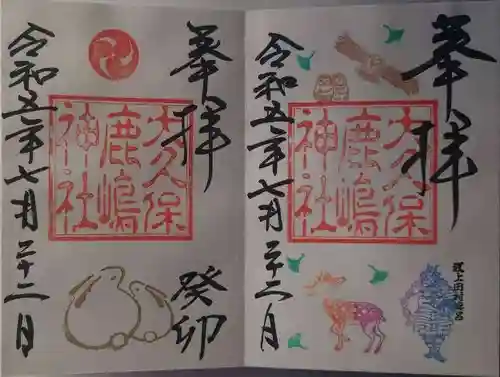 奉拝
大久保
鹿嶋
神社
癸卯
令和五年七月二十二日
奉拝
大久保
鹿嶋
神社
坂上田村麻呂
令和五年七月二十二日